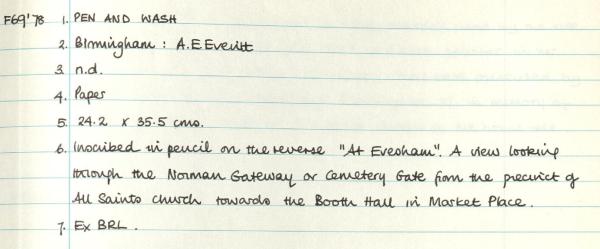 F69'78 1. PEN AND WASH
2. Birmingham : A.E.Everitt
3. n.d.
4. Paper
5. 24.2 x 35.5 cms.
6. Inscribed in pencil on the reverse "At Evesham". A view looking
through the Norman Gateway or Cemetery Gate from the precinct of
All Saints church towards the Booth Hall in Market Place.
7. Ex BRL.